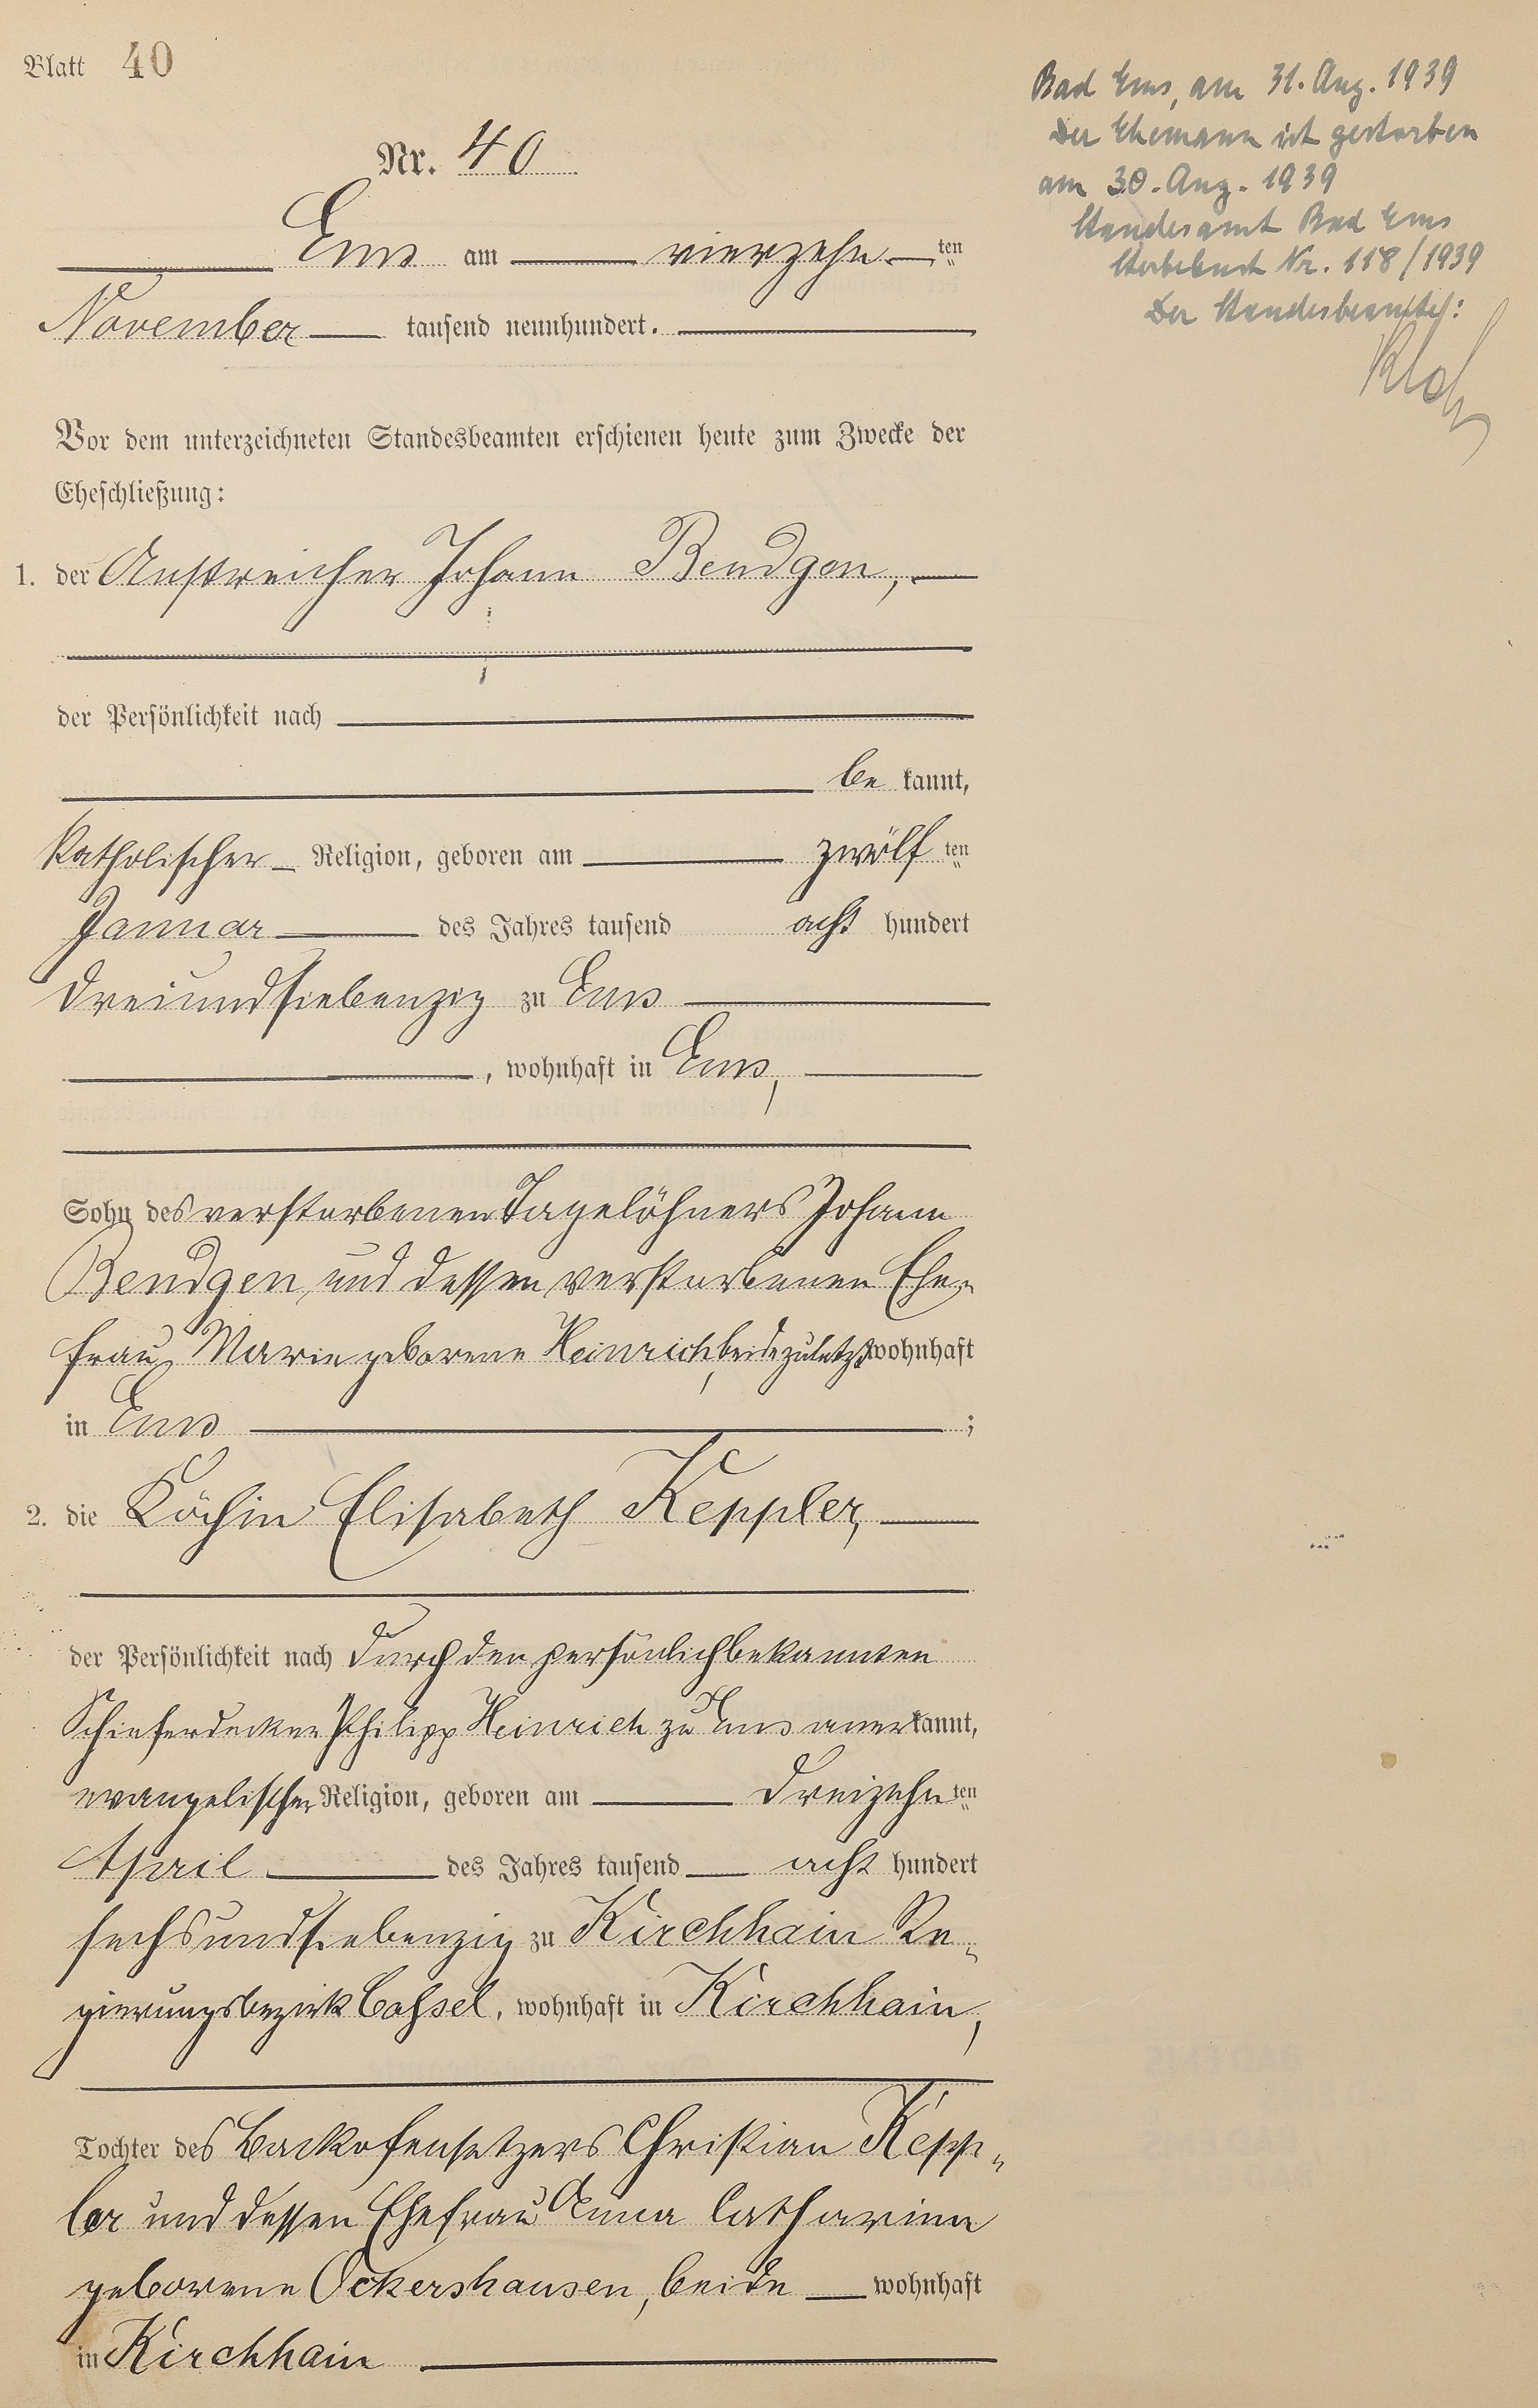 Blatt 40
Nr. 40
Ems am vierzehn ten
November tausend neunhundert.
Vor dem unterzeichneten Standesbeamten erschienen heute zum Zwecke der
Eheschließung:
1. der Anstreicher Johann Bendgen,
der Persönlichkeit nach
be kannt,
katholischer Religion, geboren am zwölf ten
Januar des Jahres tausend acht hundert
dreiundsiebenzig zu Ems
, wohnhaft in Ems,
Sohn des verstorbenen Tagelöhners Johann
Bendgen und dessen verstorbenen Ehe-
frau Marie geborene Heinrich, beide zuletzt wohnhaft
in Ems ;
2. die Köchin Elisabeth Keppler,
der Persönlichkeit nach durch den persönlich bekannten
Schieferdecker Philipp Heinrich zu Ems anerkannt,
evangelischer Religion, geboren am dreizehn ten
April des Jahres tausend acht hundert
sechsundsiebenzig zu Kirchhain Re-
gierungsbezirk Cassel, wohnhaft in Kirchhain,
Tochter des Backofensetzers Christian Kepp-
ler und dessen Ehefrau Anna Catharina
geborene Ockershausen, beide wohnhaft
in Kirchhain
Bad Ems, am 31. Aug. 1939
Der Ehemann ist gestorben
am 30. Aug. 1939
Standesamt Bad Ems
Sterbebuch Nr. 118/1939
Der Standesbeamte: